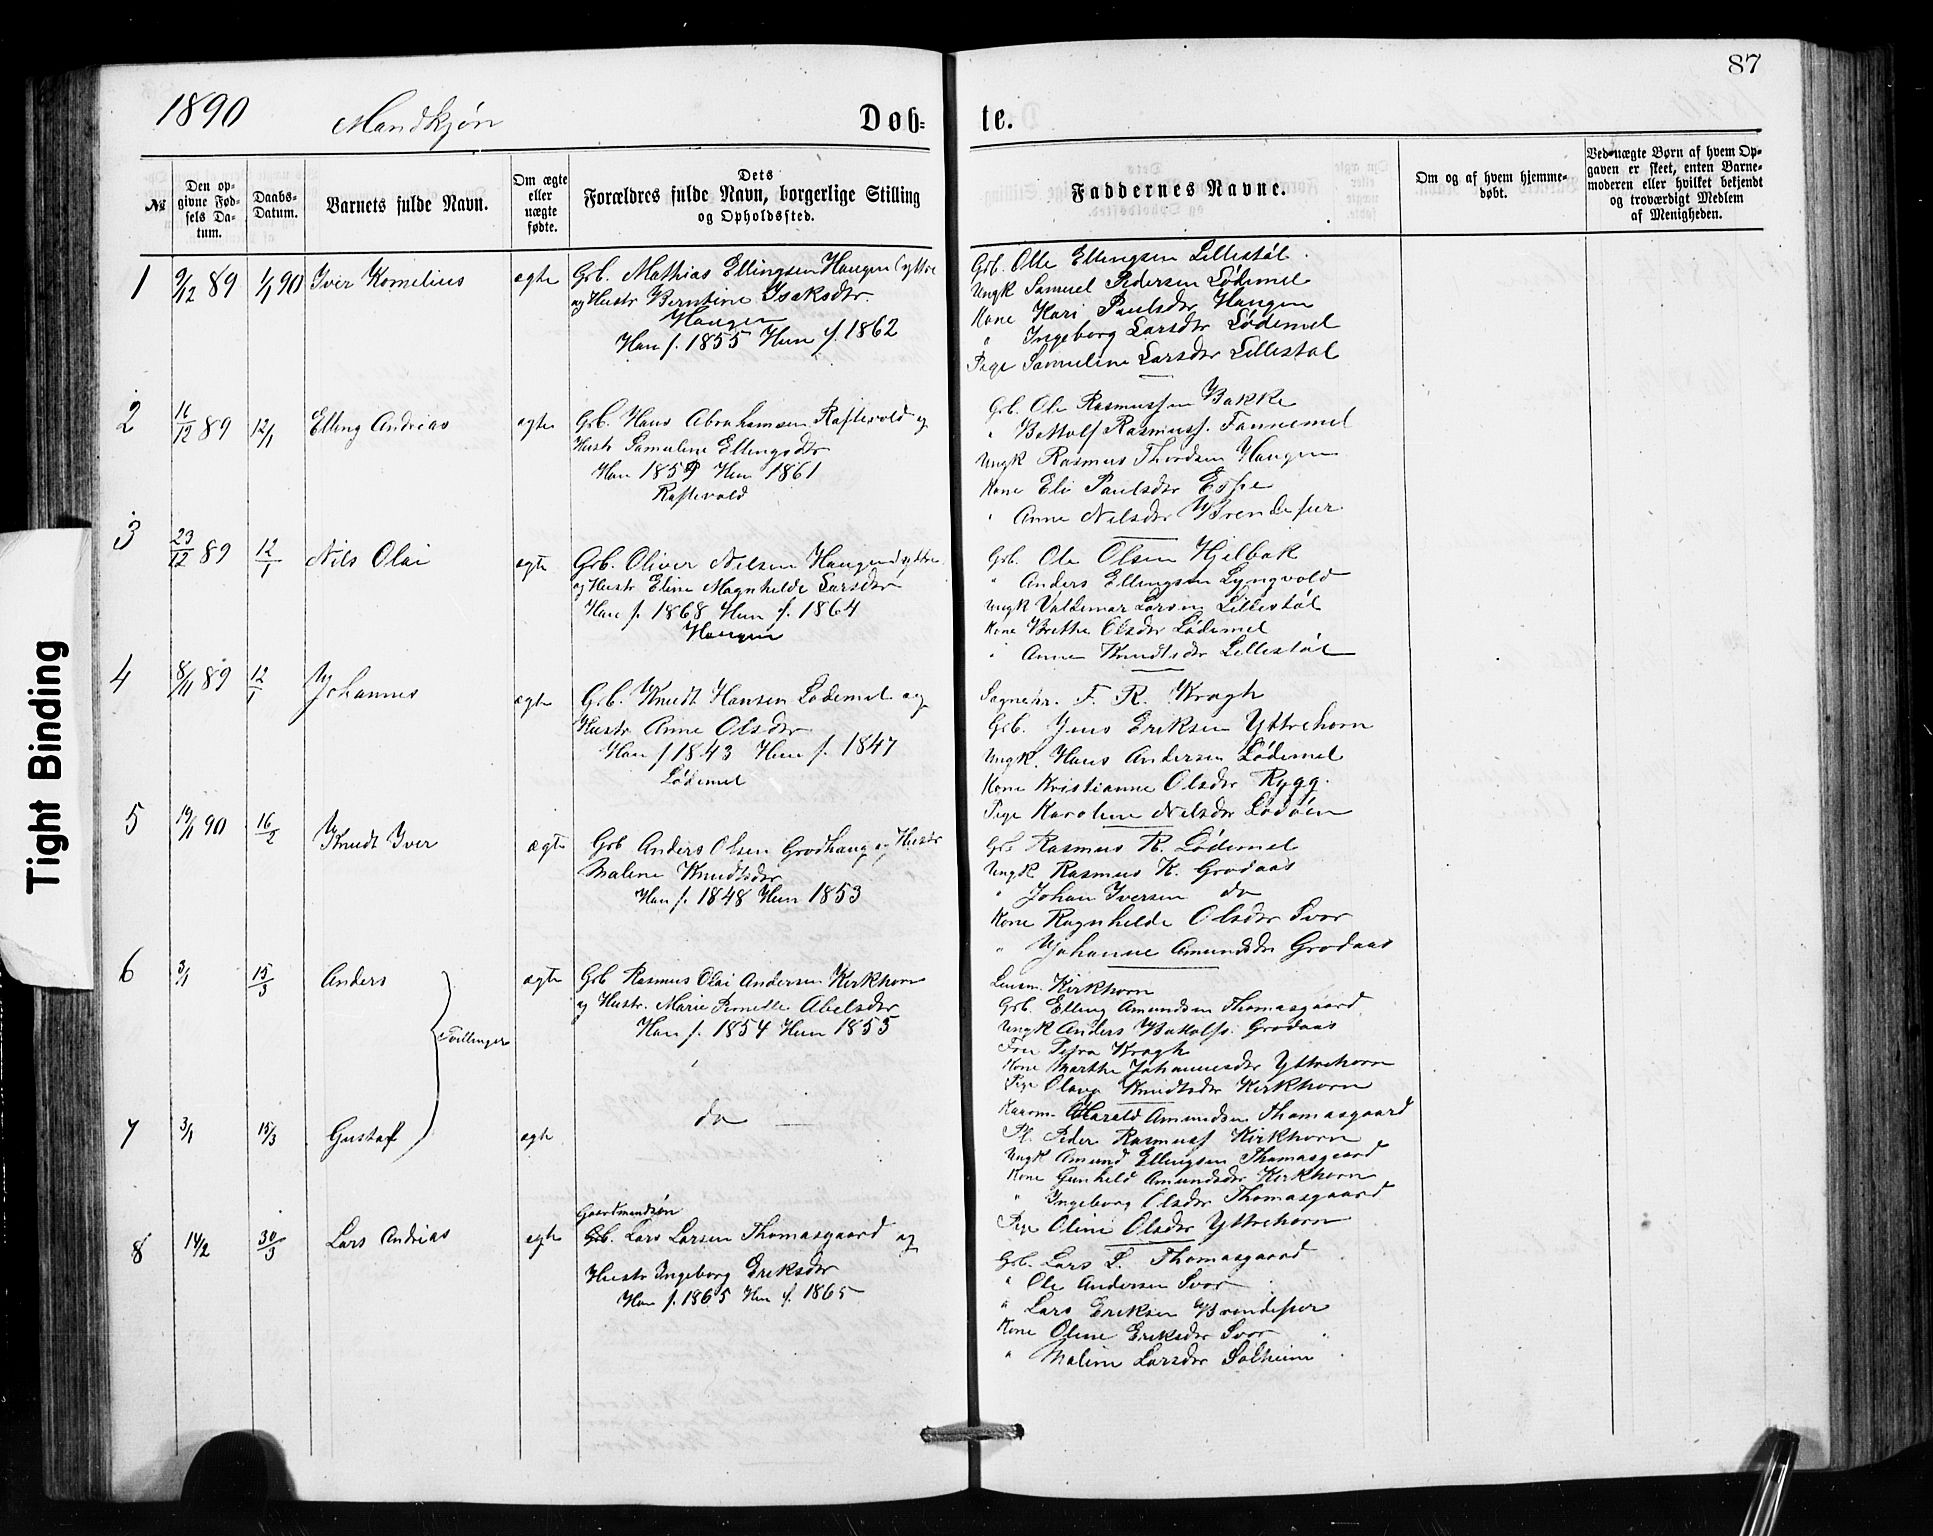 87
1890 Mandkjøn Døb= te.
№
Den op-
givne Fød-
sels Da-
tum.
Daabs-
Datum.
Barnets fulde Navn.
Om ægte
eller
uægte
fødte.
Dets
Forældres fulde Navn, borgerlige Stilling
og Opholdssted.
Faddernes Navne.
Om og af hvem hjemme-
døbt.
Ved uægte Børn af hvem Op-
gaven er skeet, enten Barne-
moderen eller hvilket bekjendt
og troværdigt Medlem
af Menigheden.
1 9/12 89 1/1 90 Iver Kornelius ægte
Grb. Mathias Ellingsen Haugen (yttre
og Hustr Berntine Isaksdtr.
Haugen
Han f. 1855 Hun f. 1862
Grb. Olle Ellingsen Lillestøl.
Ungk Samuel Pedersen Lødemel
Kone Kari Paulsdtr Haugen
" Ingeborg Larsdtr Lødemel
Pige Samuline Larsdtr Lillestøl
2 16/12 89 12/1 Elling Andreas ægte
Grb. Hans Abrahamsen Raftevold og
Hustr Samuline Ellingsdtr
Han 1859 Hun 1861
Raftevold
Grb. Ole Rasmussen Bakke
" Bottolf Rasmuss. Fannemel
Ungk Rasmus Thordsen Haugen
Kone Eli Paulsdtr Espe
" Anne Nilsdtr Brendefur
3 23/12 89 12/1 Nils Olai ægte
Grb. Oliver Nilsen Haugen (yttre
og Hustr Eline Magnhilde Larsdtr
Han f. 1868 Hun f. 1864
Haugen
Grb. Ole Olsen Hjelbak
" Anders Ellingsen Lyngvold
Ungk Valdemar Larsen Lillestøl
Kone Brethe Olsdtr Lødemel
" Anne Knudtsdtr Lillestøl
4 8/11 89 12/1 Johannes ægte
Grb. Knudt Hansen Lødemel og
Hustr Anne Olsdtr
Han f 1843 Hun f. 1847
Lødemel
Sognepr. F. R. Kragh
Grb. Jens Eriksen Yttrehorn
Ungk. Hans Andersen Lødemel
Kone Kristianne Olsdtr Rygg.
Pige Karoline Nilsdtr Lødøen
5 19/1 90 16/2 Knudt Iver ægte
Grb Anders Olsen Grodhaug og Hustr
Maline Knudtsdtr
Han f. 1848 Hun 1853
Grb Rasmus R. Lødemel
Ungk Rasmus K. Grodaas
" Johan Iversen do
Kone Ragnhilde Olsdtr Svor
" Johanne Amundsdtr Grodaas
6 3/1 15/3 Anders ægte
Tvillinger
Grb Rasmus Olai Andersen Kirkhorn
og Hustr. Marie Pernille Abelsdtr
Han f. 1854 Hun 1855
Lensm. Kirkhorn
Grb. Elling Amundsen Thomasgaard
Ungk Anders Bottolfs. Grodaas
Fru Petra Kragh
Kone Marthe Johannesdtr Yttrehorn
Pige Olaug Knudtsdtr Kirkhorn
7 3/1 15/3 Gustaf ægte
do
Harald Amundsen Thomasgaard
Peder Rasmuss Kirkhorn
Ungk Amund Ellingsen Thomasgaard
Kone Gunhild Amundsdtr Kirkhorn
" Ingeborg Olsdtr Thomasgaard
Pige Oline Olsdtr Yttrehorn
8 14/2 30/3 Lars Andreas ægte
Gaardmandsøn
Grb. Lars Larsen Thomasgaard og
Hustr Ingeborg Eriksdtr
Han f. 1865 Hun f. 1865
Grb. Lars L. Thomasgaard
" Ole Andersen Svor
" Lars Eriksen Brendefur
Kone Oline Eriksdtr Svor
" Maline Larsdtr Solheim
Tight Binding